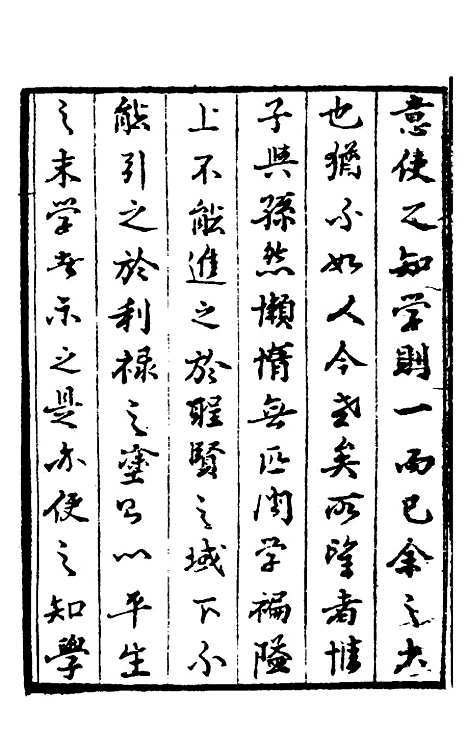 意使之知学則一而已余之大
也猶不如人今老矣所望者惟
子與孫然懶惰無匹问学褊隘
上不能進之於聖賢之域下不
能引之於利禄之塗召以平生
之末学者示之是亦使之知學